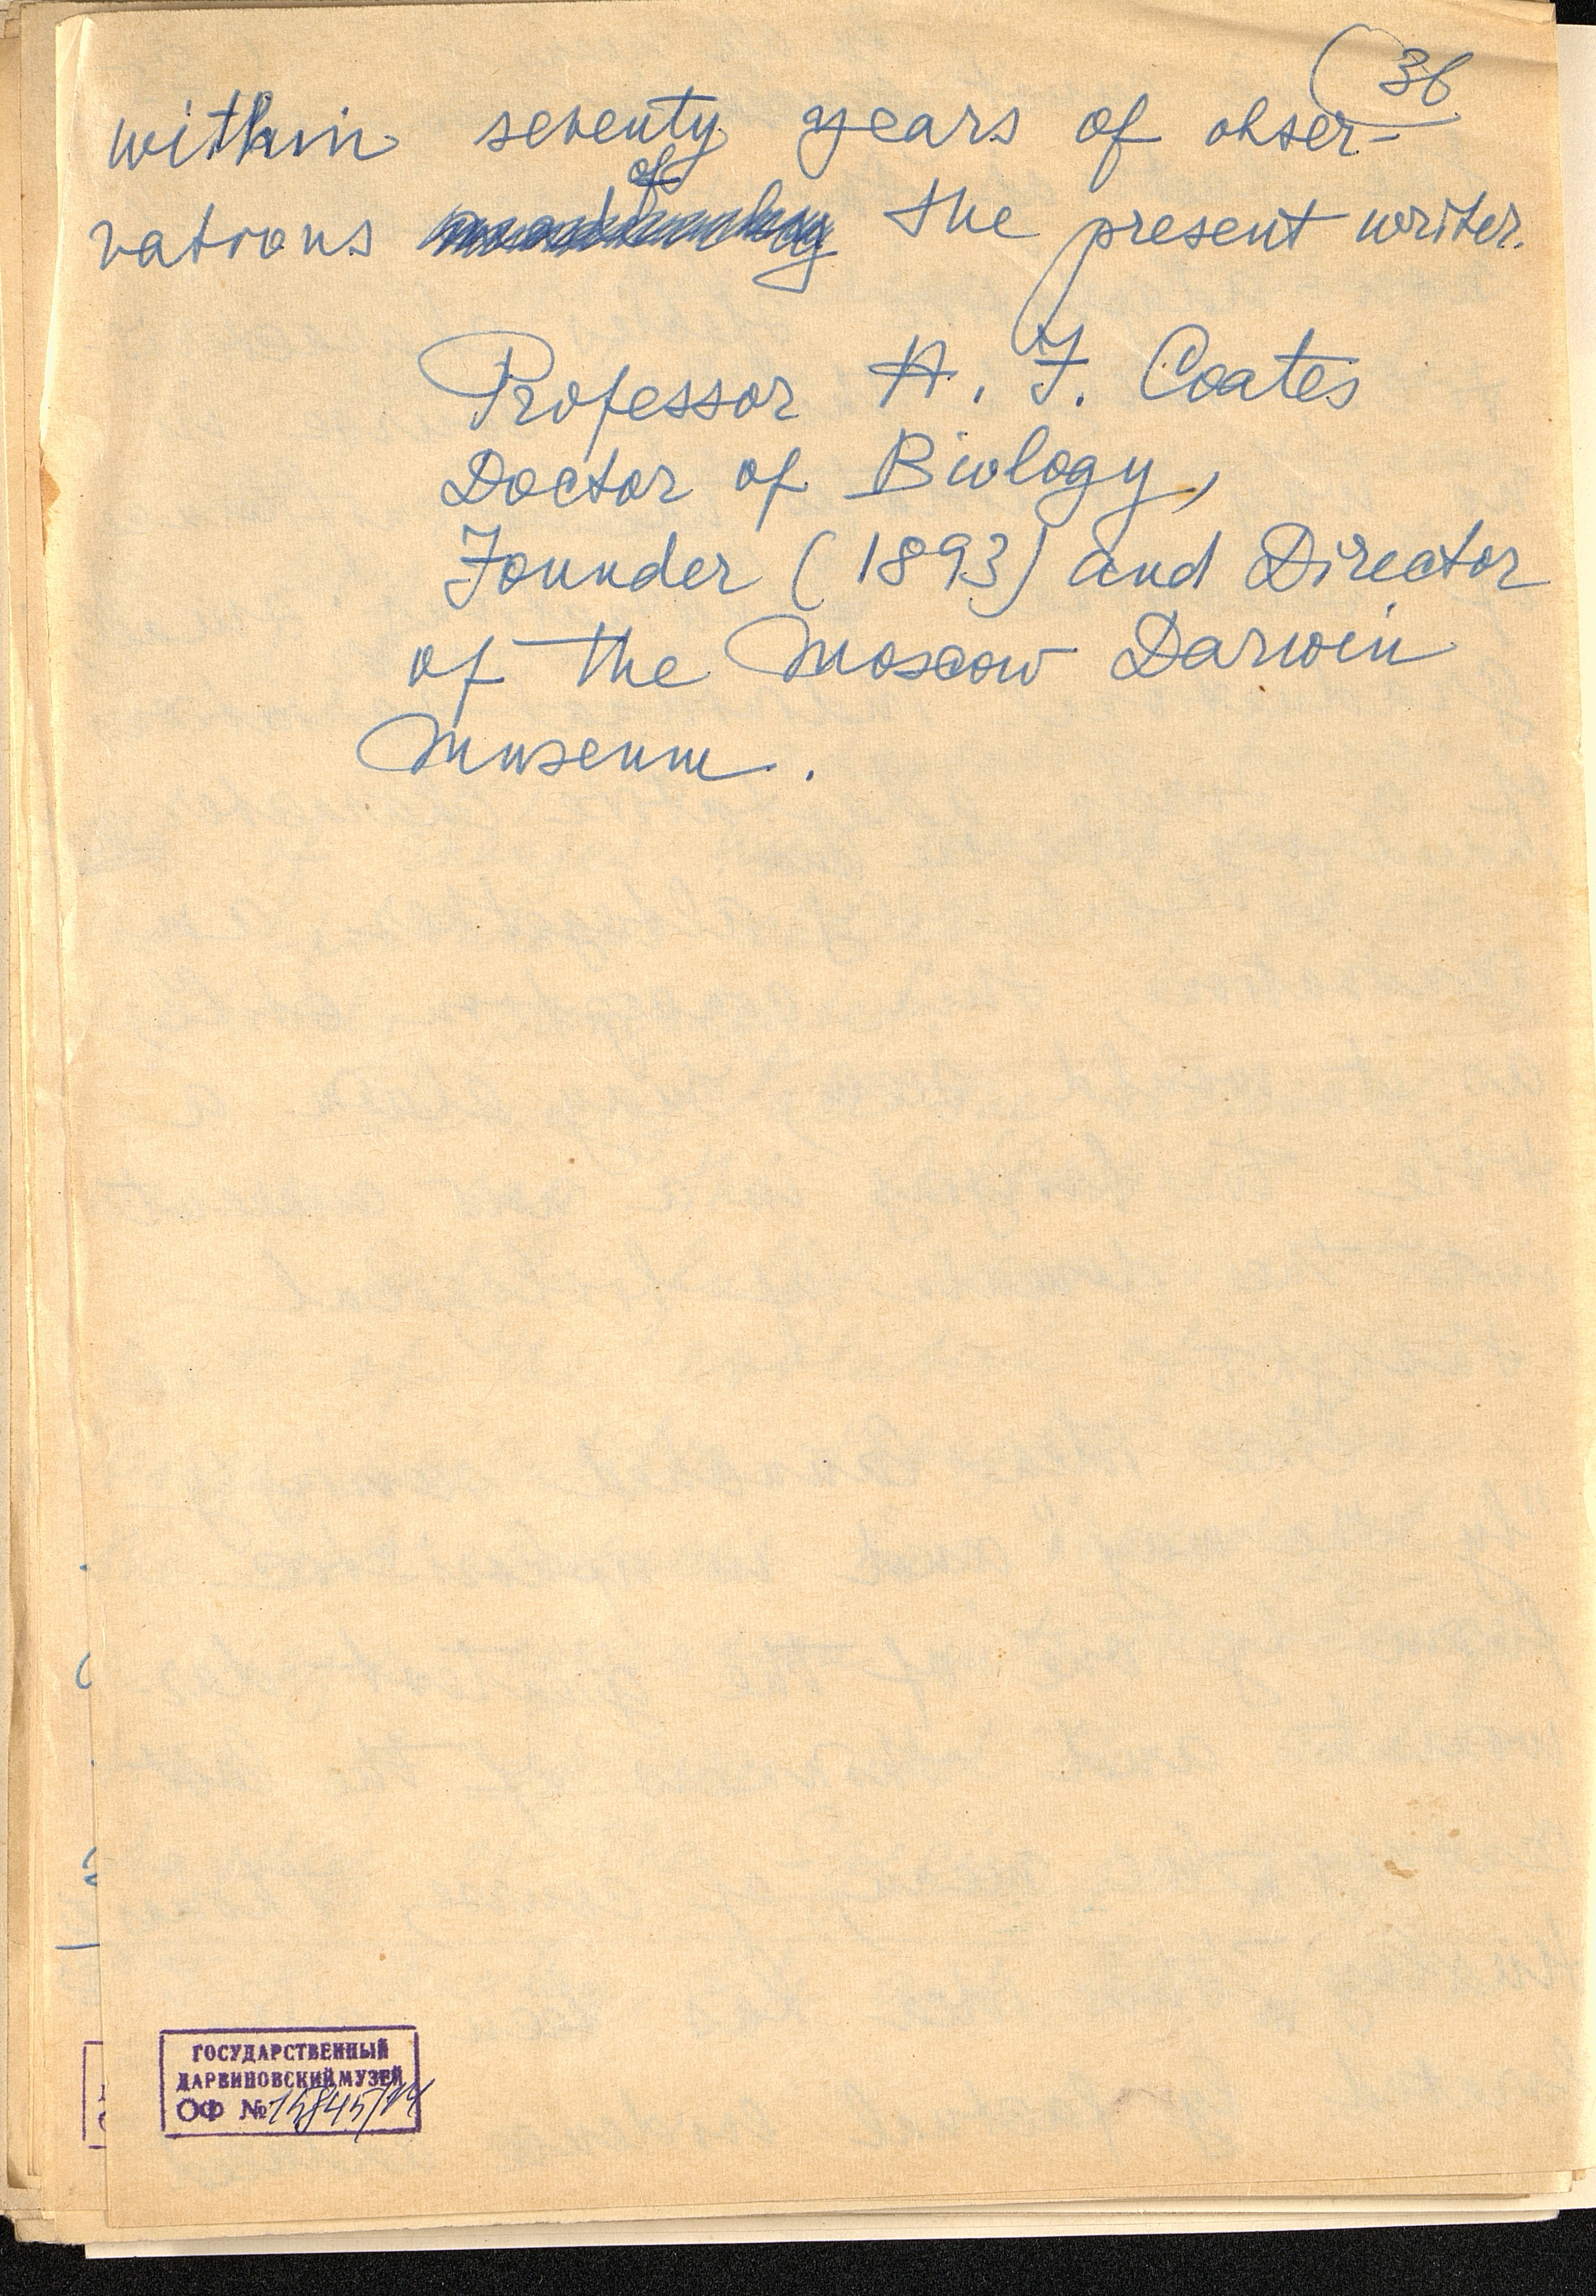 36
within seventy years of obser-
of
vations the present writer.
Professor A. F. Coates
Doctor of Biology,
Founder (1893) and Director
of the Moscow Darwin
Museum.
ГОСУДАРСТВЕННЫЙ
ДАРВИНОВСКИЙ МУЗЕЙ
ОФ №15845/14